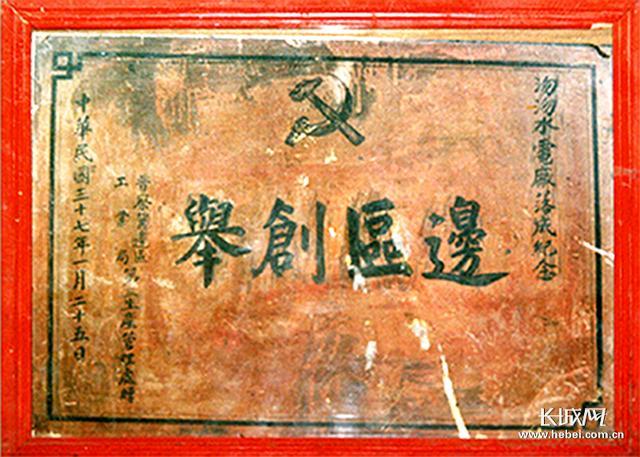 沕沕水電廠落成紀念
邊區創舉
晉察冀邊區
工業局
生產管理處贈
中華民國三十七年一月二十五日
长城网
www.hebei.com.cn